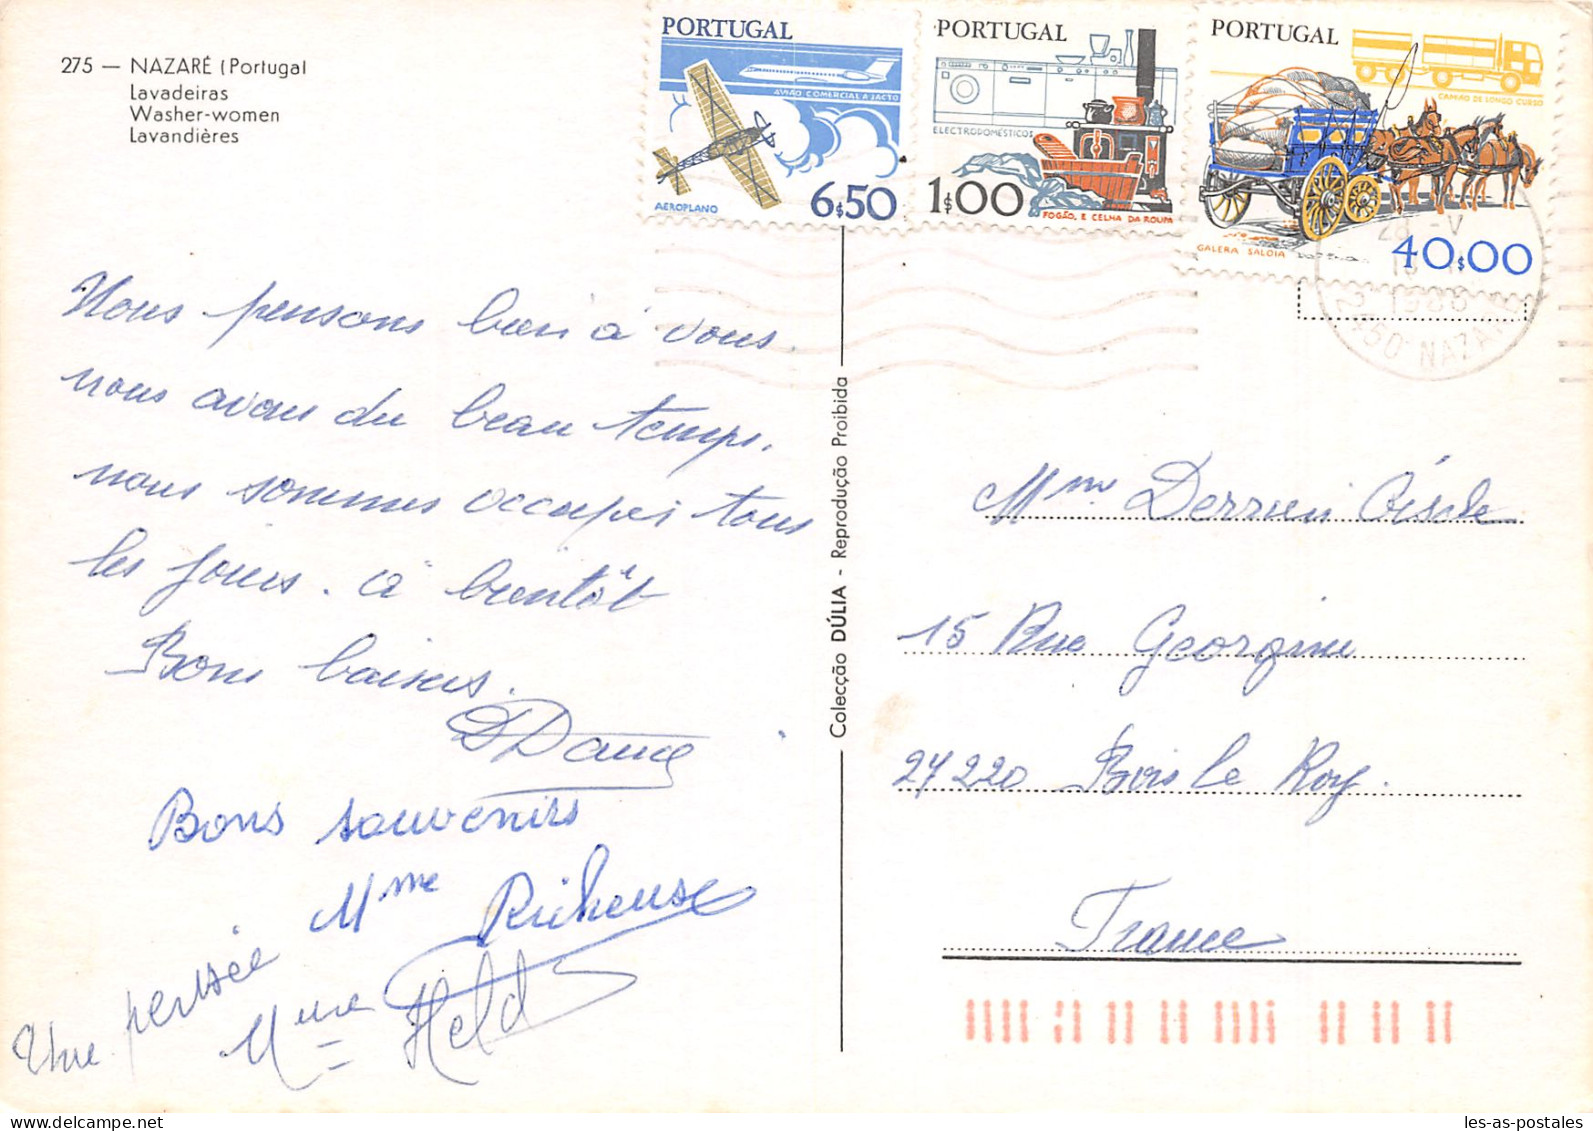 275 — NAZARÉ (Portugal
Lavadeiras
Washer-women
Lavandières
PORTUGAL
AVIÃO COMERCIAL A JACTO
AEROPLANO
6$50
PORTUGAL
ELECTRODOMÉSTICOS
1$00
FOGÃO, E CELHA DA ROUPA
PORTUGAL
CAMIÃO DE LONGO CURSO
GALERA SALOIA
40$00
28 -V
2450 NAZARÉ
Nous pensons bien à vous
nous avons du beau temps,
nous sommes occupés tous
les jours. à bientôt
Bons baisers.
Bons souvenirs
Mme
Une pensée
Mme Held
Colecção DÚLIA - Reprodução Proibida
Mme Derrien
15 Rue Georgine
27220 Bois le Roy.
France
les-as-postales